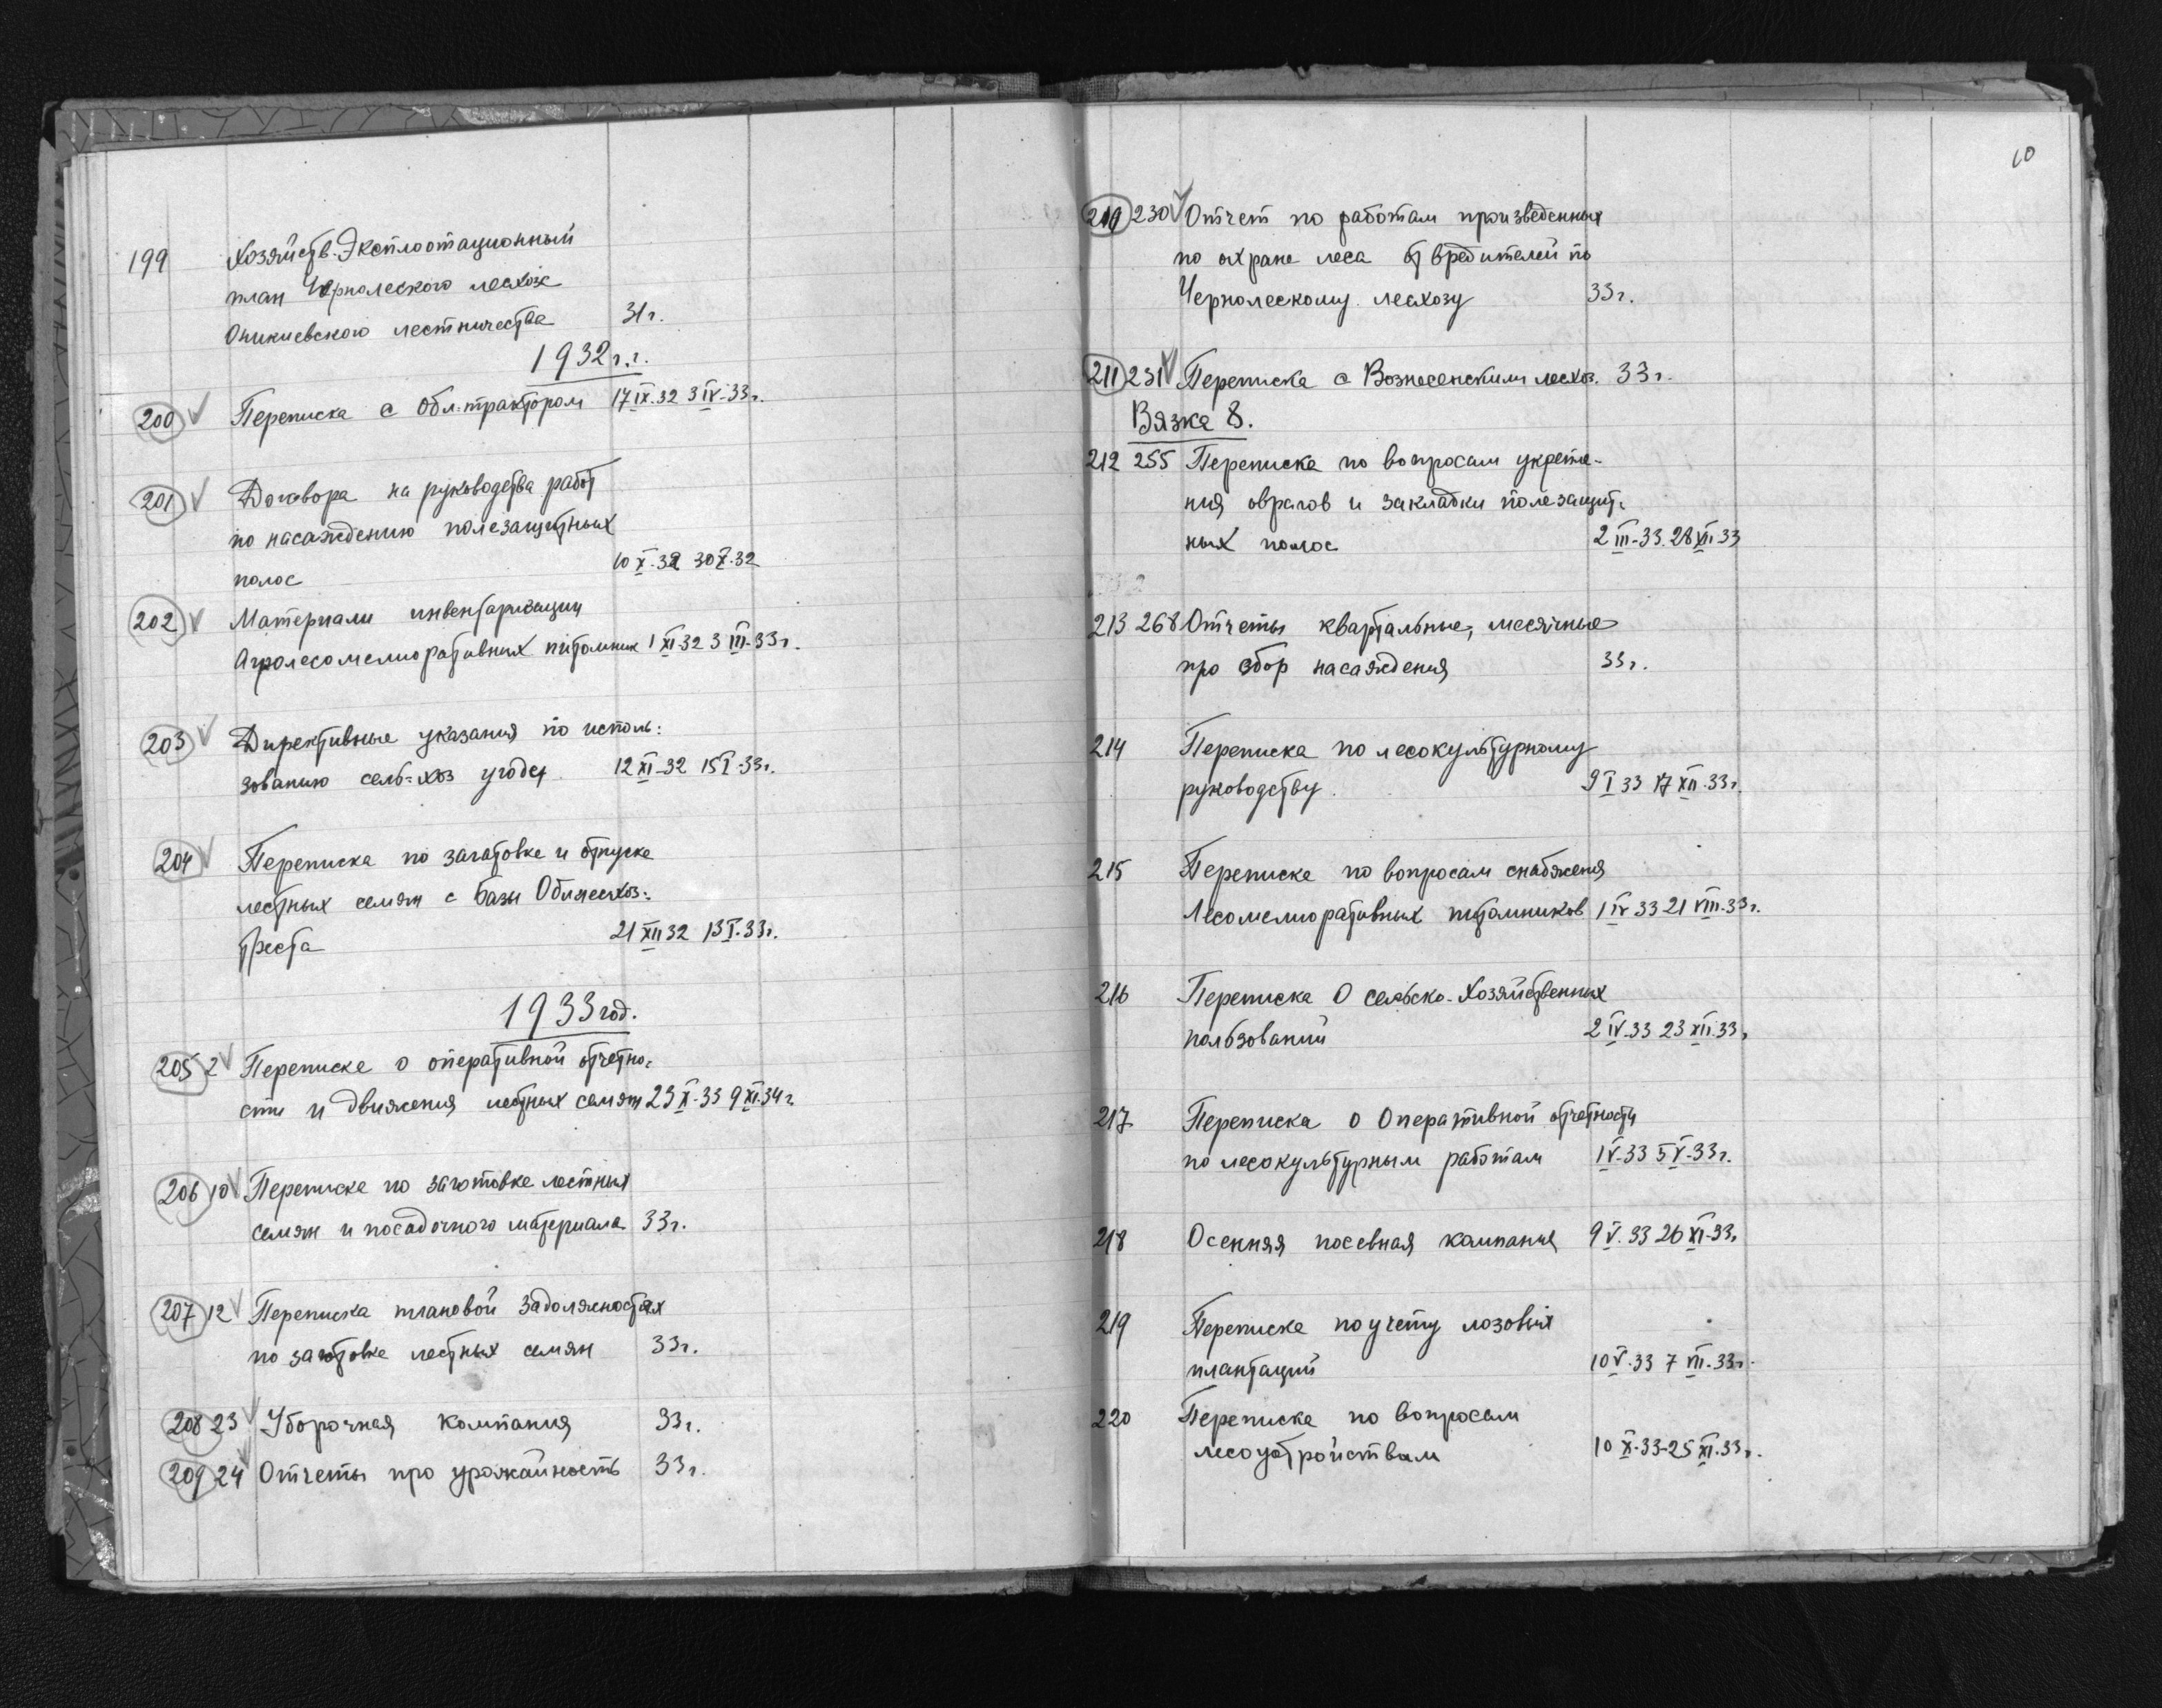 199 Хозяйств. Эксплоотационный
план Чернолеского лесхоза
Оникиевского лестничества 31г.
1932г.г.
200 Переписка с Обл-трактором 17 IX-32 3 IV-33г.
201 Договора на руководства работ
по насаждению полезащитных
полос 10 X-32 30 X-32
202 Материали инвентаризации
Агролесомелиоративних питомник 1 XI-32 3 III-33г.
203 Директивные указания по исполь:
зованию сель-хоз угодей 12 XI-32 15 I-33г.
204 Переписка по заготовке и отпуске
лестных семян с базы Обллесхоз:
треста 21 XII 32 13 I-33г.
1933 год.
205 2 Переписке о оперативной отчетно-
сти и движения лестных семян 23 X-33 9 XI-34г.
206 10 Переписке по заготовке лестных
семян и посадочного материала 33г.
207 12 Переписка плановой задолжностях
по заготовке лестных семян 33г.
208 23 Уборочная компания 33г.
209 24 Отчеты про урожайность 33г.
10
210 230 Отчет по работам произведенных
по охране леса от вредителей по
Чернолескому лесхозу 33г.
211 231 Переписка с Вознесенским лесхоз. 33г.
Вязка 8.
212 255 Переписке по вопросам укрепле-
ния оврагов и закладки полезащит-
ных полос 2 III-33. 28 XII-33
213 268 Отчеты квартальные, месячные
про збор насаждения 33г.
214 Переписка по лесокультурному
руководству. 9 I 33 17 XII-33г.
215 Переписке по вопросам снабжения
Лесомелиоративных питомников 1 IV 33 21 VIII-33г.
216 Переписка О сельско-Хозяйственных
пользований 2 IV-33 23 XII-33г.
217 Переписка о Оперативной отчетности
по лесокультурным работам 1 V-33 5 V-33г.
218 Осенняя посевная кампания 9 V-33 26 XI-33г.
219 Переписке по учету лозовых
плантаций 10 V-33 7 VII-33г.
220 Переписке по вопросам
лесоустройствам 10 X-33-25 XI-33г.